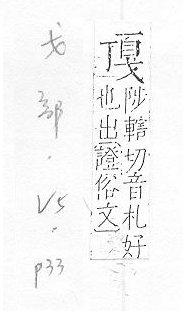 陟轄切音札好
也出「證俗文」
戈部.V5.p33